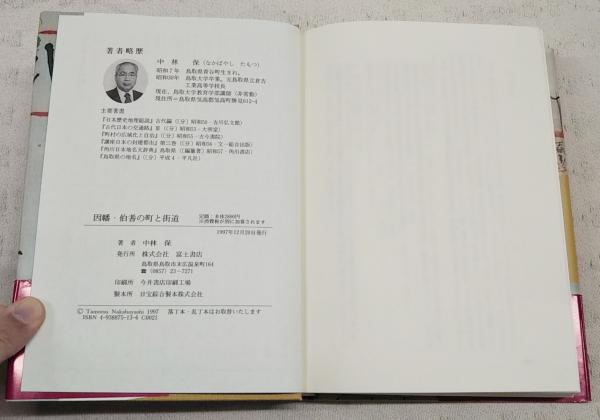 著者略歴
中林 保（なかばやし たもつ）
昭和7年 鳥取県青谷町生まれ。
昭和30年 鳥取大学卒業。元鳥取県立倉吉
工業高等学校長
現在、鳥取大学教育学部講師（非常勤）
現住所＝鳥取県気高郡気高町勝見612-4
主要著書
『日本歴史地理総説』古代編（〔分〕昭和50・吉川弘文館）
『古代日本の交通路』Ⅲ（〔分〕昭和53・大明堂）
『町村の広域化と自治』（〔分〕昭和55・古今書院）
『講座日本の封建都市』第三巻（〔分〕昭和56・文一総合出版）
『角川日本地名大辞典』鳥取県（〔編纂著〕昭和57・角川書店）
『鳥取県の地名』（〔分〕平成4・平凡社）
因幡・伯耆の町と街道
定価：本体2800円
※消費税が別に加算されます
1997年12月20日発行
著者 中林 保
発行所 株式会社 富士書店
鳥取県鳥取市末広温泉町164
☎(0857)23-7271
印刷所 今井書店印刷工場
製本所 日宝綜合製本株式会社
Ⓒ Tamotsu Nakabayashi 1997 落丁本・乱丁本はお取替いたします
ISBN 4-938875-13-6 C0021